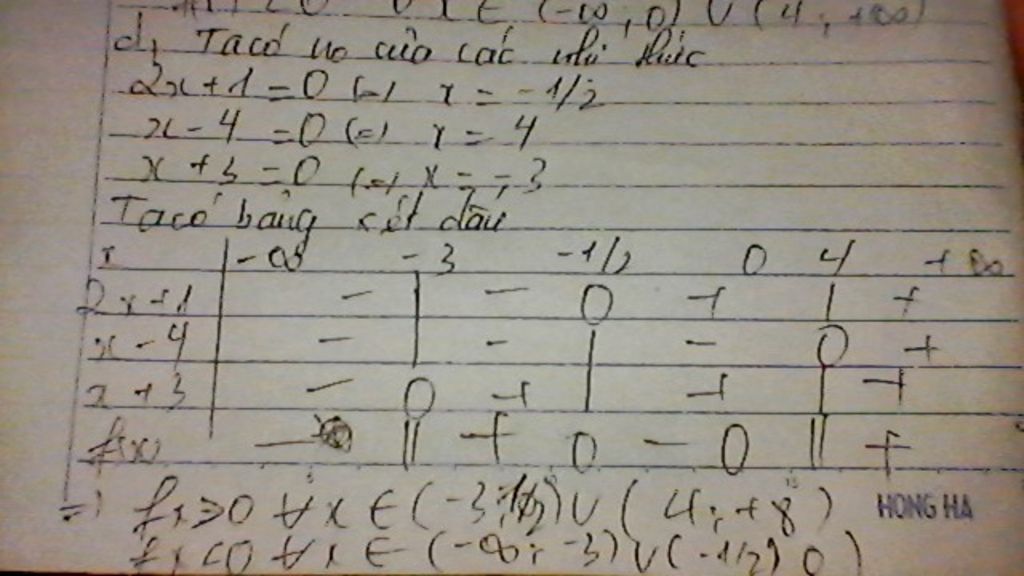 f(x) < 0 ∀ x ∈ (-∞; 0) ∪ (4; +∞)
d, Ta có no của các nhị thức
2x+1 = 0 (=) x = -1/2
x - 4 = 0 (=) x = 4
x + 3 = 0 (=) x = -3
Ta có bảng xét dấu
x -∞ -3 -1/2 0 4 +∞
2x+1 - | - 0 + | +
x - 4 - | - | - 0 +
x + 3 - 0 + | + | +
f(x) - || + 0 - 0 || +
=) fx > 0 ∀ x ∈ (-3; -1/2) ∪ (4; +∞)
HONG HA
fx < 0 ∀ x ∈ (-∞; -3) ∪ (-1/2; 0)